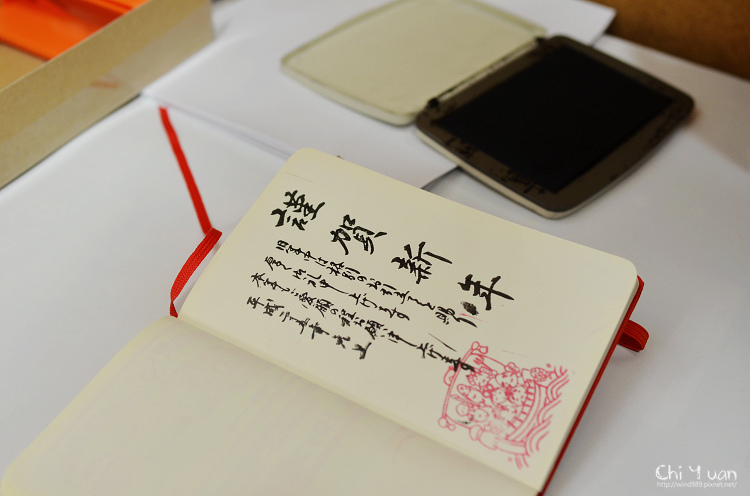 謹賀新年
旧年中は格別のお引立てを賜り
厚く御礼申し上げます
本年もご愛顧の程お願い申し上げます
平成二五年元旦
Chi Yuan
http://wind989.pixnet.net/